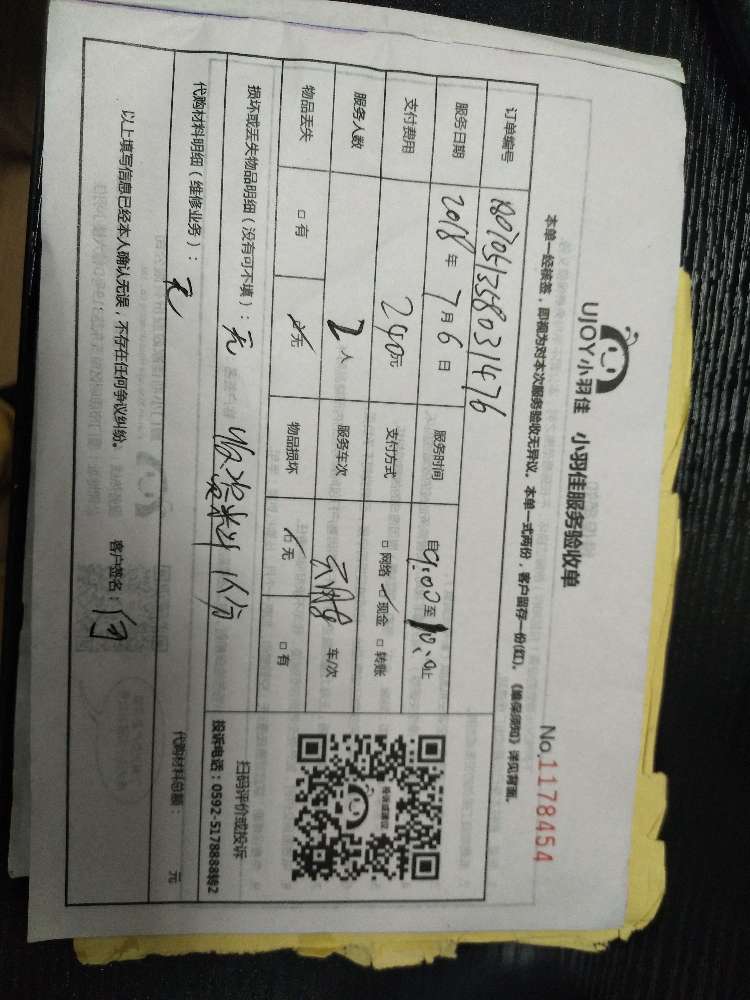 UJOY小羽佳 小羽佳服务验收单
No.1178454
本单一经核签，即视为对本次服务验收无异议。本单一式两份，客户留存一份(红)。《维保须知》详见背面。
订单编号
服务日期 2018年7月6日 服务时间 自9:00至 止
支付费用 240元 支付方式 □网络 ☑现金 □转账
服务人数 2人 服务车次 车/次
物品丢失 □有 ☑无 物品损坏 ☑无 □有
投诉或建议
扫码评价或投诉
投诉电话：0592-5178888转2
损坏或丢失物品明细（没有可不填）：无
代购材料明细（维修业务）：无
代购材料总额： 元
以上填写信息已经本人确认无误，不存在任何争议纠纷。 客户签名：